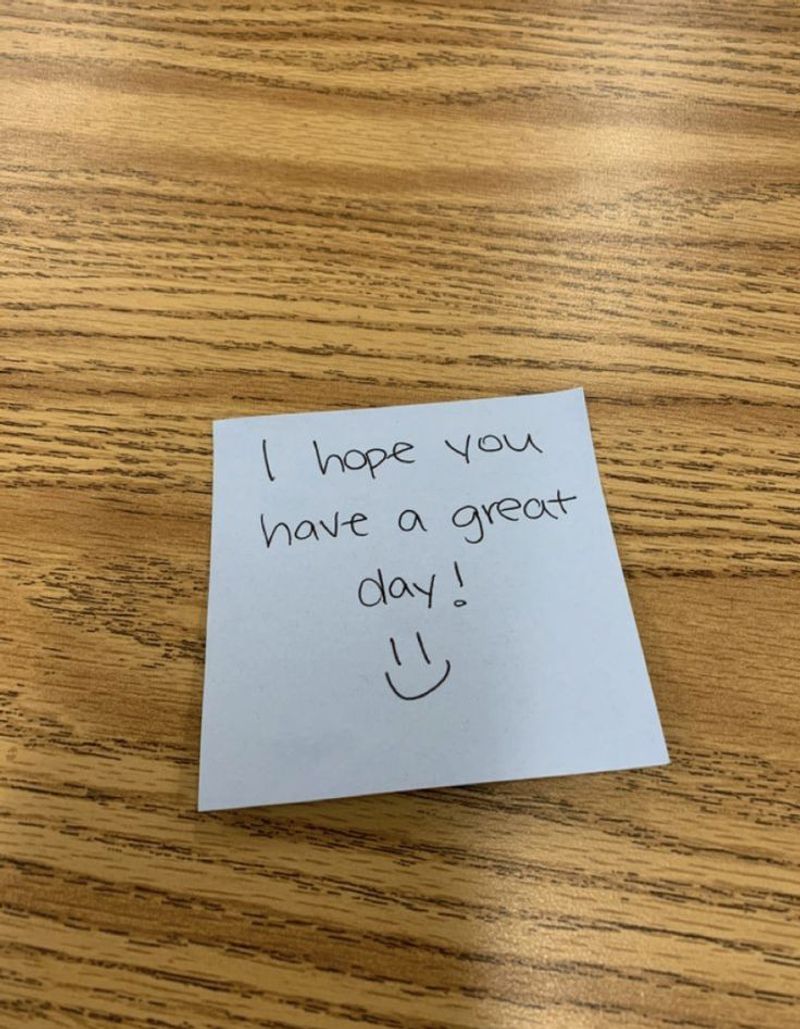 I hope you
have a great
day!